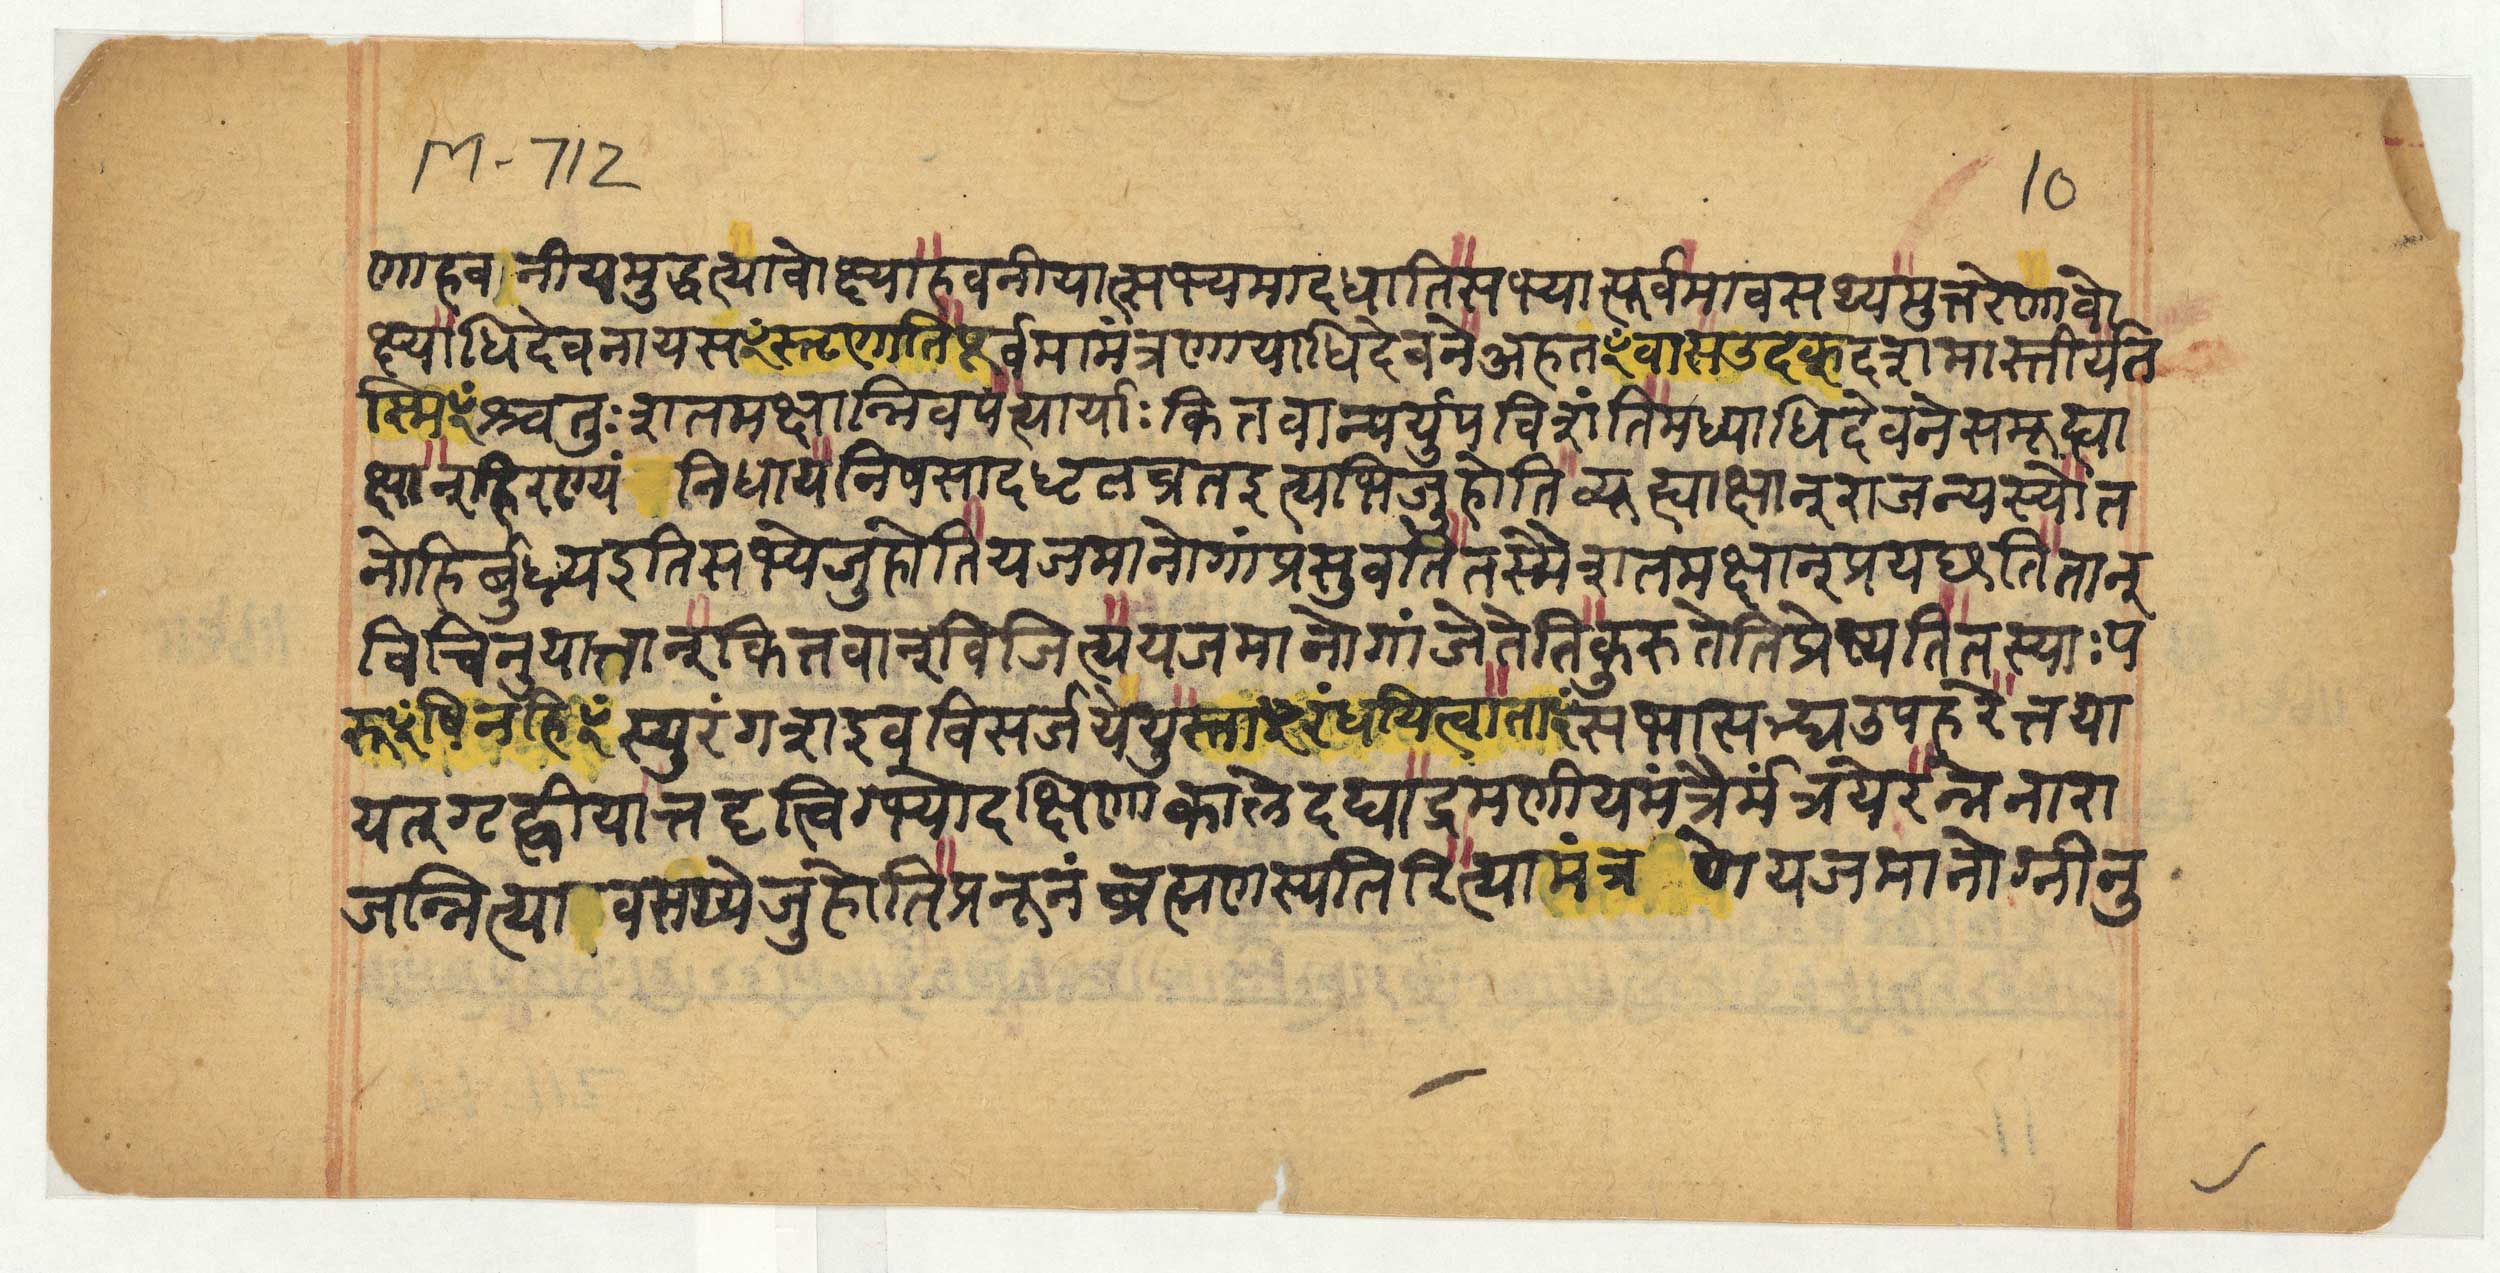 M-712
10
णाहवनीयमुद्धृत्यावोक्ष्याहवनीयात्सभ्यमादधातिसभ्यात्पूर्वमावसथ्यमुत्तरेणावो
क्ष्याधिदेवनायसꣳस्तृणातिपूर्वमामंत्रणायाधिदेवनेअहतꣳवासउदक्दशमास्तीर्यत
स्मिꣳश्चतुःशतमक्षान्निवपेत्यार्याःकितवान्पर्युपविशंतिमध्याधिदेवनेसमूह्या
क्षान्हिरण्यं निधायनिषसादधृतव्रतइत्यभिजुहोतिव्यूह्याक्षान्राजन्यस्योत
नोहिर्बुध्न्यइतिसभ्येजुहोतियजमानोगांप्रसुवतितस्मैशतमक्षान्प्रयछतितान्
विचिनुयात्तान्कितवान्विजित्ययजमानोगांजेतेतिकुरुतेतिप्रेष्यतितस्याःप
रूꣳषिनहिꣳस्युरंगशइवविसर्जयेयुस्ताꣳरंधयित्वाताꣳसभासभ्द्यउपहरेत्तया
यत्गृह्णीयात्तदृत्विग्भ्योदक्षिणाकालेदद्याद्रमणीयमंत्रैर्मंत्रयेरन्ननारा
जन्नित्यावसथ्येजुहोतिप्रनूनंब्रह्मणस्पतिरित्यामंत्रणेयजमानोग्नीनु